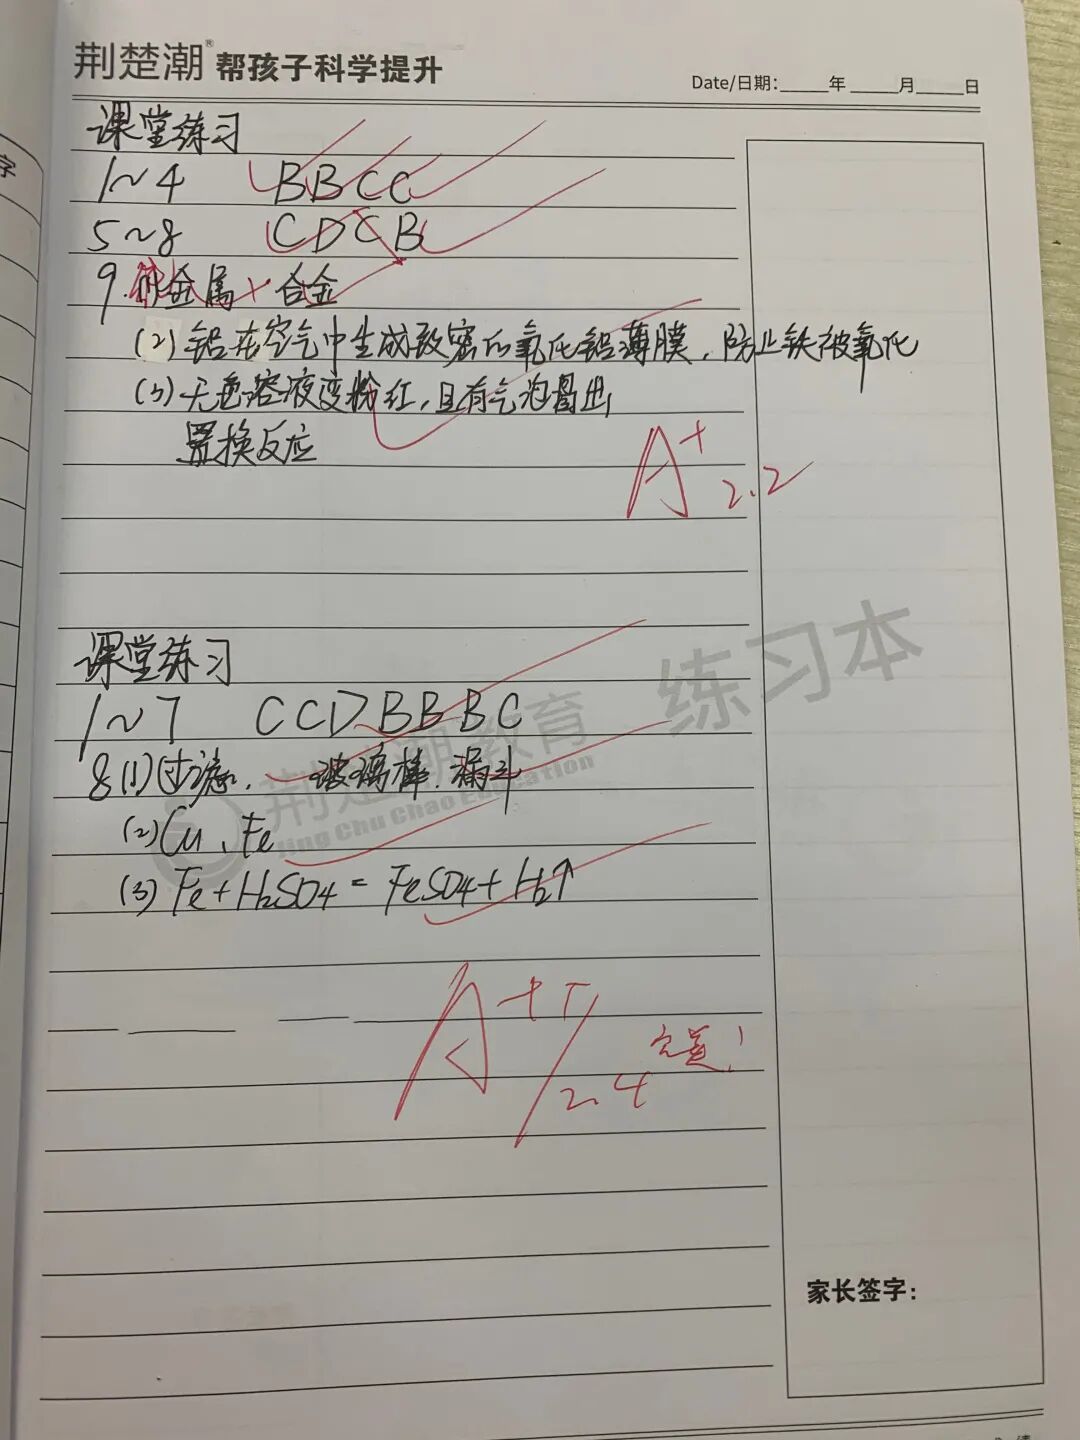 荆楚潮® 帮孩子科学提升
Date/日期:_____年_____月_____日
课堂练习
1~4 BBCC
5~8 CDCB
9.(1)金属 合金
(2)铝在空气中生成致密的氧化铝薄膜,防止铁被氧化
(3)无色溶液变粉红,且有气泡冒出,
置换反应
A+ 2.2
课堂练习
1~7 CCDBBBC
8(1)过滤. 玻璃棒.漏斗
(2)Cu、Fe
(3) Fe+H2SO4=FeSO4+H2↑
A++ 2.4 完美!
荆楚潮教育 练习本
Jing Chu Chao Education
家长签字: